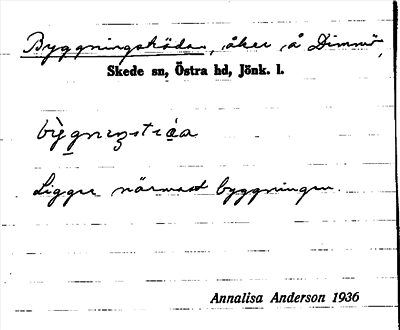 Byggningsträdan, åker å Dimnö,
Skede sn, Östra hd, Jönk. l.
Ligger närmast byggningen.
Annalisa Anderson 1936